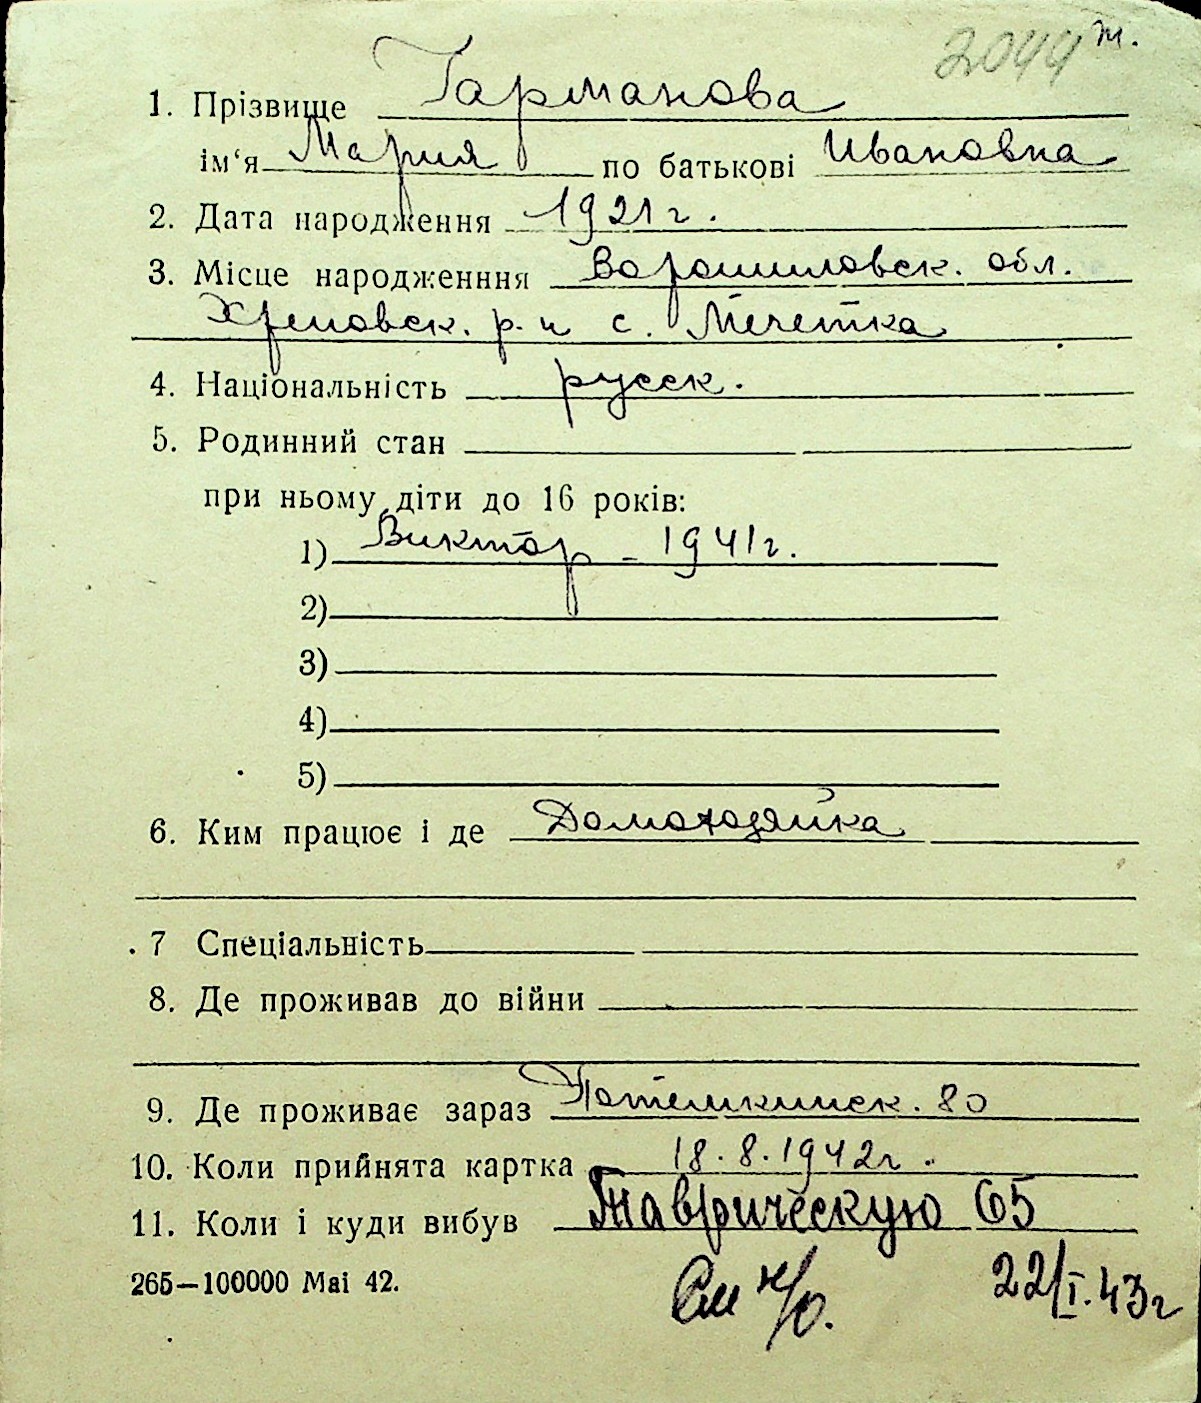 2044 т.
1. Прізвище Гарманова
ім‘я Мария по батькові Ивановна
2. Дата народження 1921 г.
3. Місце народженння Ворошиловск. обл.
Хреновск. р-н с. Мечетка
4. Національність русск.
5. Родинний стан
при ньому діти до 16 років:
1) Виктор - 1941 г.
2)
3)
4)
5)
6. Ким працює і де Домохозяйка
. 7 Спеціальність
8. Де проживав до війни
9. Де проживає зараз Потемкинск. 80
10. Коли прийнята картка 18.8.1942 г.
11. Коли і куди вибув Таврическую 65
265—100000 Mai 42.
См н/о. 22/I.43 г